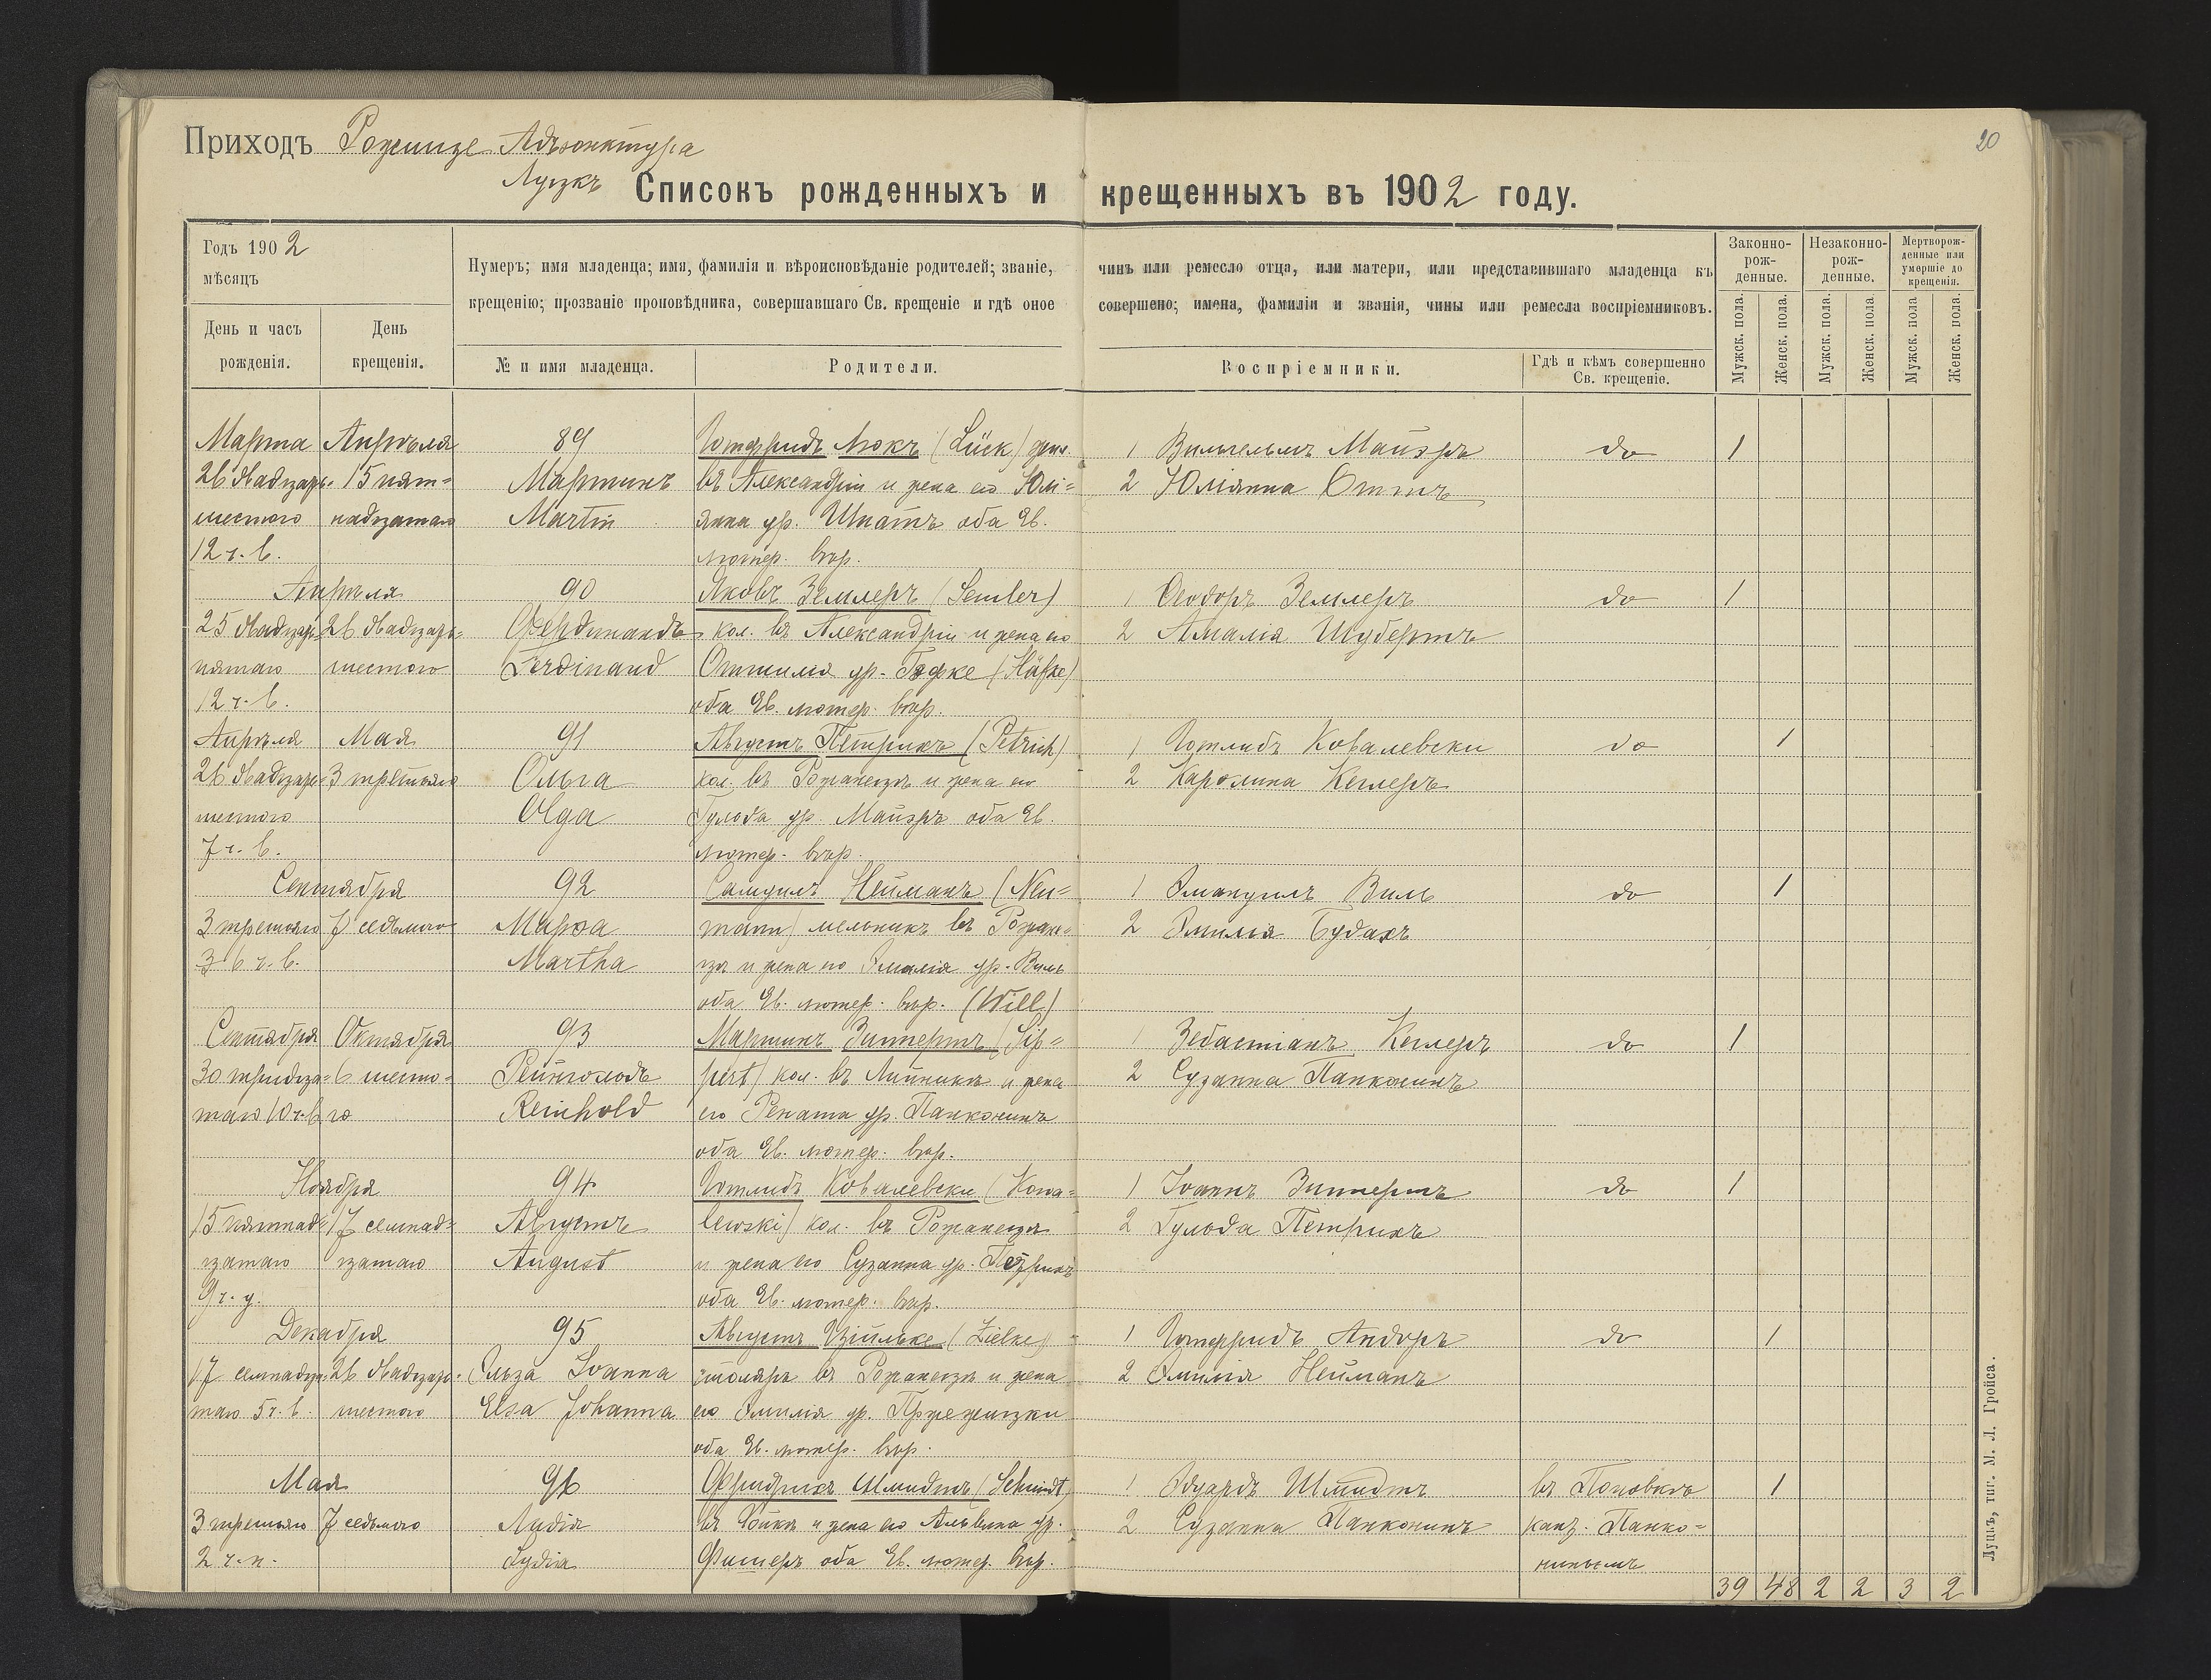 20
Приходъ Рожище Адъюнктура
Луцкъ
Списокъ рожденныхъ и крещенныхъ въ 1902 году.
Годъ 1902
мѣсяцъ
День и часъ рожденія.
День крещенія.
Нумеръ; имя младенца; имя, фамилія и вѣроисповѣданіе родителей; званіе, чинъ или ремесло отца, или матери, или представившаго младенца къ
крещенію; прозваніе проповѣдника, совершавшаго Св. крещеніе и гдѣ оное совершено; имена, фамиліи и званія, чины или ремесла воспріемниковъ.
№ и имя младенца.
Родители.
Воспріемники.
Гдѣ и кѣмъ совершенно Св. крещеніе.
Законно-рож-денные.
Незаконно-рож-денные.
Мертворож-денные или умершіе до крещенія.
Мужск. пола.
Женск. пола.
Мужск. пола.
Женск. пола.
Мужск. пола
Женск. пола.
Марта Апрѣля 89 Готфридъ Люкъ (Lück) 1 Вильгельмъ Майэръ do 1
26 двадцать 15 пят= Мартинъ въ Александріи и жена его Юлі= 2 Юліянна Оттъ
шестого надцатаго Martin янна ур. Шпатъ оба Ев.
12 ч. в. лютер. вѣр.
Апрѣля 90 Яковъ Земллеръ (Semler) 1 Ѳеодоръ Земллеръ do 1
25 двадцать 26 двадцать= Фердинандъ кол. въ Александріи и жена его 2 Амалія Шубертъ
пятаго шестого Ferdinand Оттилія ур. Гэфке (Häfke)
12 ч. в. оба Ев. лютер. вѣр.
Апрѣля Мая 91 Августъ Петрихъ (Petrich) 1 Готлибъ Ковалевски do 1
26 двадцать 3 третьяго Ольга кол. въ Рожанецѣ и жена его 2 Каролина Кеслеръ
шестого Olga Гульда ур. Майэръ оба Ев.
7 ч. в. лютер. вѣр.
Сентября 92 Самуилъ Нейманъ (Neu= 1 Эмануилъ Виль do 1
3 третьяго 7 седьмого Марѳа mann) мельникъ въ Рожане= 2 Эмилія Будахъ
3 6 ч. в. Martha цѣ и жена его Эмалія ур. Виль
оба Ев. лютер. вѣр. (Will)
Сентября Октября 93 Мартинъ Зиппертъ (Sip= 1 Зебастіанъ Кеслеръ do 1
30 тридца= 6 шесто= Рейнгольдъ pert) кол. въ Липникѣ и жена 2 Сузанна Панконинъ
таго 10 ч. в. го Reinhold его Рената ур. Панконинъ
оба Ев. лютер. вѣр.
Ноября 94 Готлибъ Ковалевски (Kowa= 1 Іоаннъ Зиппертъ do 1
15 пятнад= 17 семнад= Августъ lewski) кол. въ Рожанецѣ 2 Гульда Петрихъ
цатаго цатаго August и жена его Сузанна ур. Петрихъ
9 ч. у. оба Ев. лютер. вѣр.
Декабря 95 Августъ Цільке (Zielke) 1 Готфридъ Андоръ do 1
17 семнадца= 26 двадцать= Эльза Іоанна столяръ въ Рожанецѣ и жена 2 Эмилія Нейманъ
таго 5 ч. в. шестого Elsa Johanna его Эмилія ур. Пржежицки
оба Ев. лютер. вѣр.
Мая 96 Фридрихъ Шмидтъ (Schmidt) 1 Эдуардъ Шмидтъ въ Поповкѣ 1
3 третьяго 7 седьмого Лидія и жена его Альвина ур. 2 Сузанна Панконинъ кант. Панко=
2 ч. п. Lydia Фишеръ оба Ев. лютер. вѣр. нинымъ
39 48 2 2 3 2
Луцкъ, тип. М. Л. Гройса.